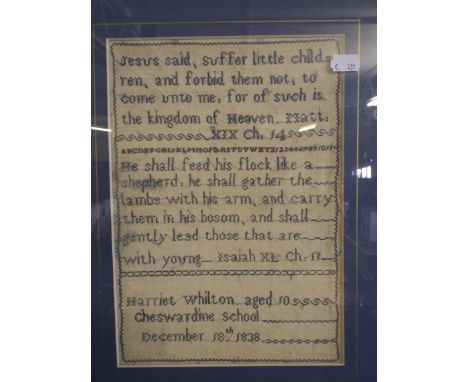 Jesus said, suffer little child=
ren, and forbid them not, to
come unto me: for of such is
the kingdom of Heaven. Matt:
XIX Ch: 14
He shall feed his flock like a
shepherd: he shall gather the
lambs with his arm, and carry
them in his bosom, and shall
gently lead those that are
with young Isaiah XL Ch: 11
Harriet Whilton aged 10
Cheswardine School
December 18th 1838